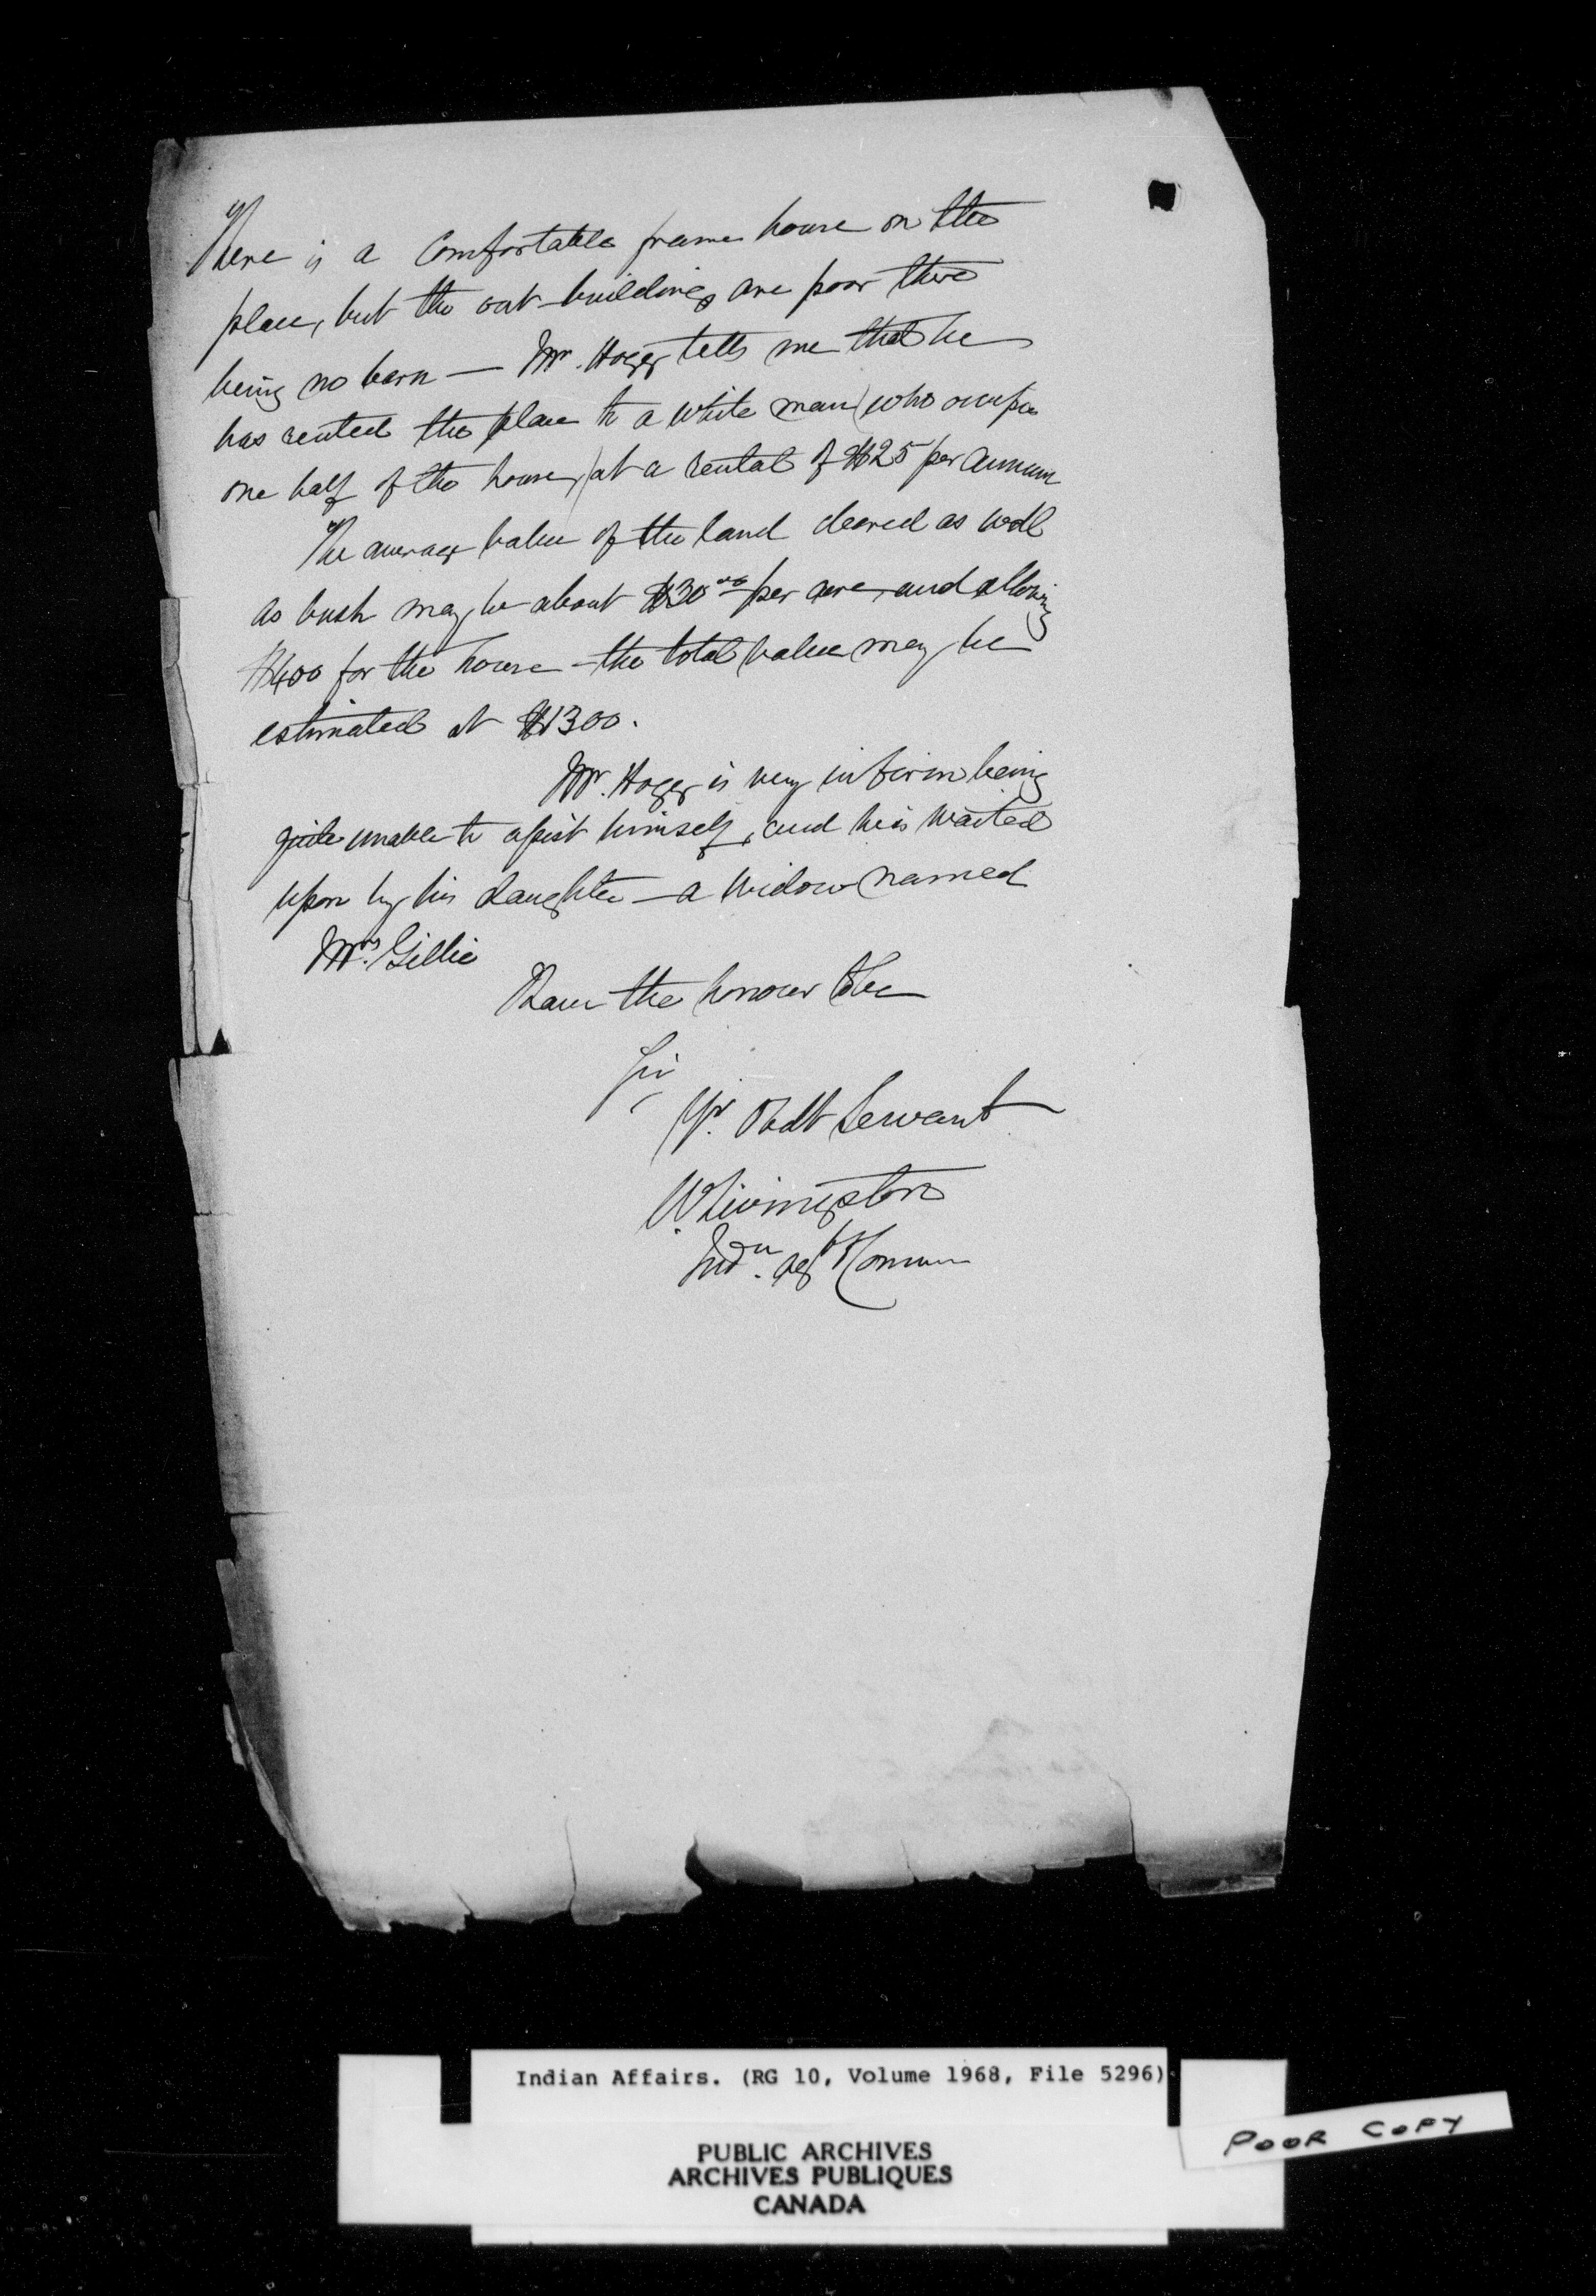 There is a Comfortable frame house on the
place, but the out-buildings are poor there
being no barn — Mr. Hogg tells me that he
has rented the place to a white man (who occupies
one half of the house,) at a rental of $25 per annum
The average value of the land cleared as well
as bush may be about $30.00 per acre, and allowing
$400 for the house — the total value may be
estimated at $1300.
Mr. Hogg is very infirm being
quite unable to assist himself, and he is waited
upon by his daughter — a widow named
Mrs. Gillie
I have the honour to be
Sir
Yr. Obdt Servant
W. Livingston
Indn. Agt
Indian Affairs. (RG 10, Volume 1968, File 5296)
POOR COPY
PUBLIC ARCHIVES
ARCHIVES PUBLIQUES
CANADA